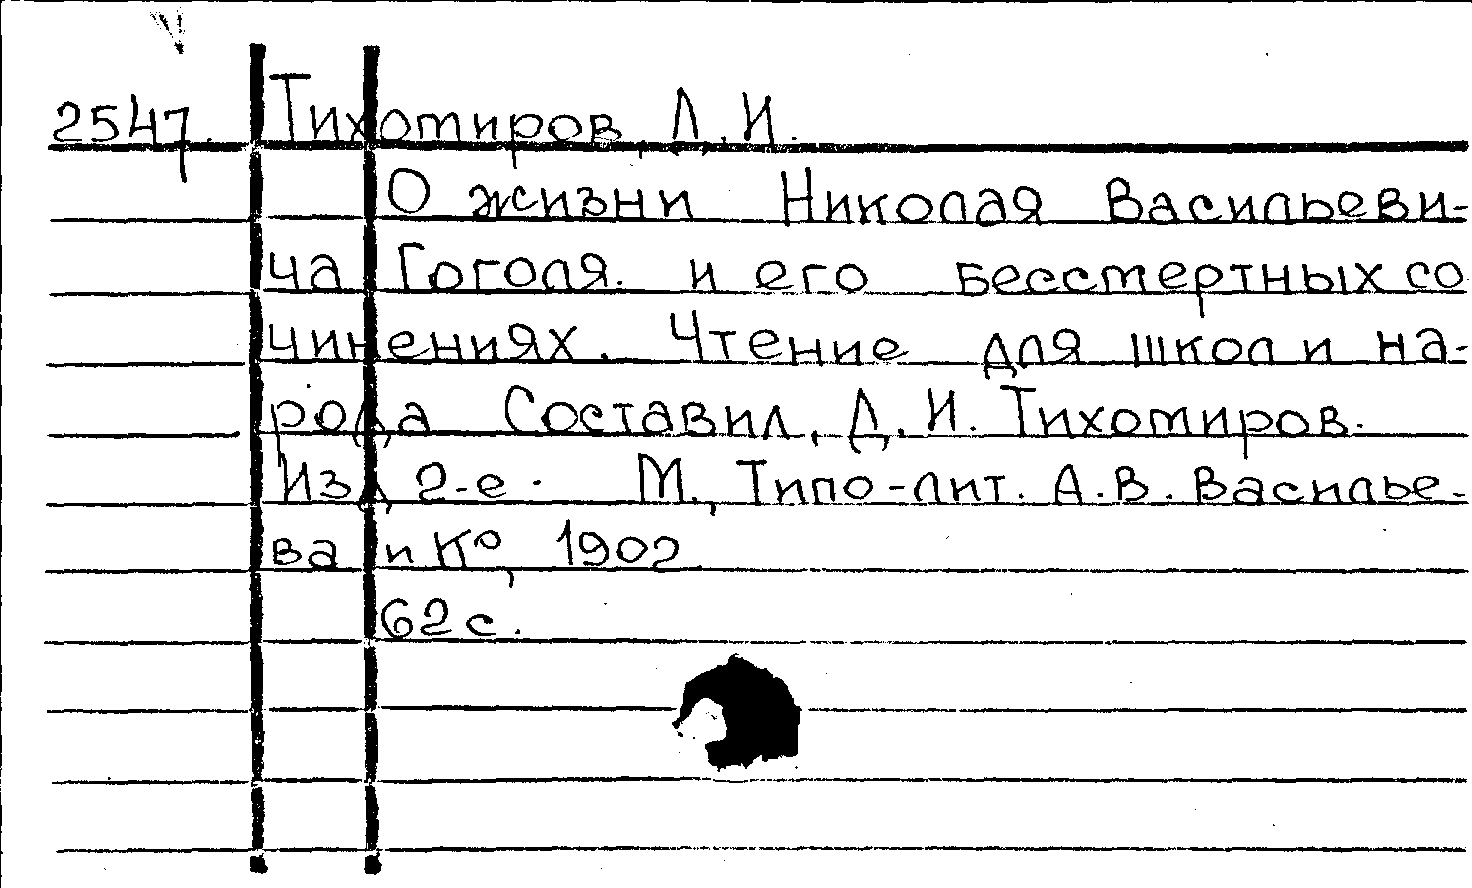 2547. Тихомиров, Д. И.
О жизни Николая Васильеви-
ча Гоголя. и его бессмертных со
чинениях. Чтение для школ и на-
рода Составил, Д. И. Тихомиров.
Изд 2-е. М., Типо-лит. А. В. Василье-
ва и Ко, 1902
62 с.